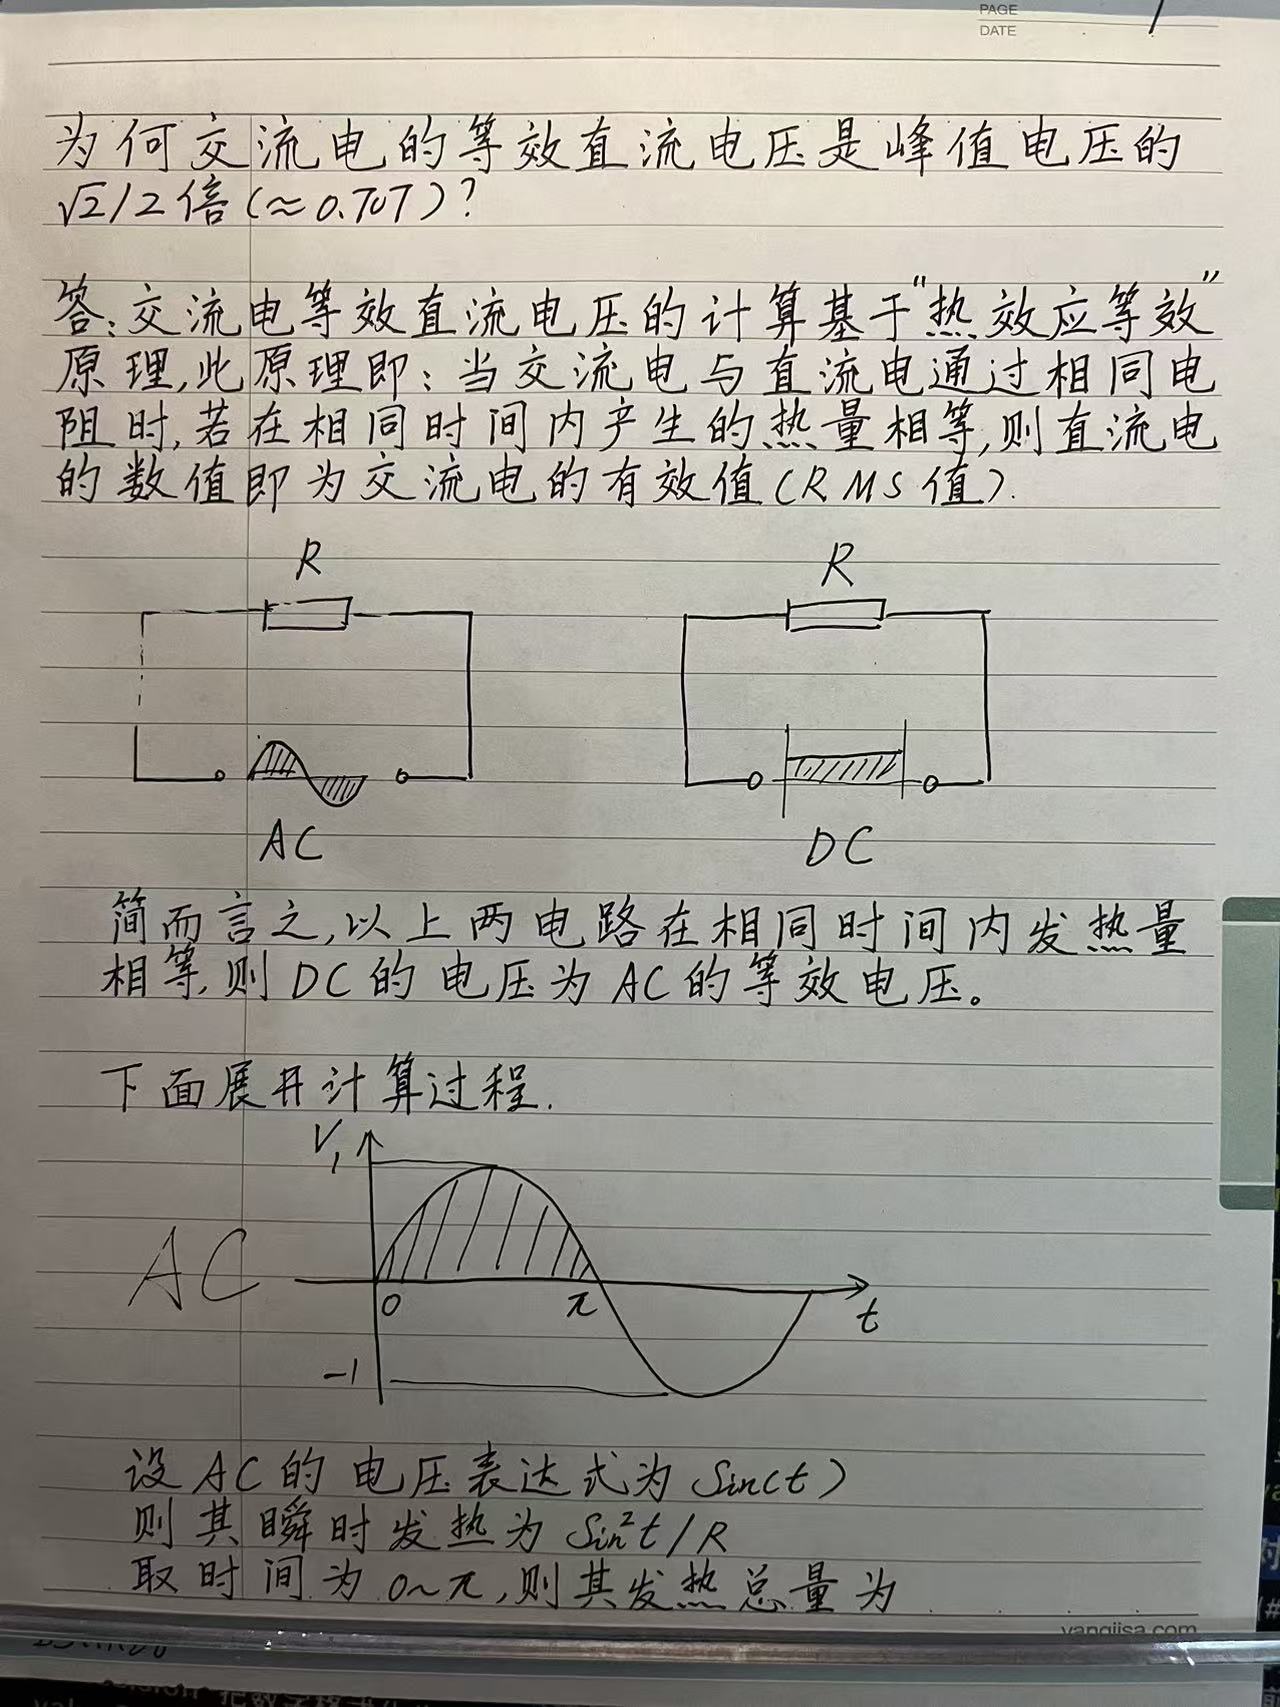 PAGE
DATE
为何交流电的等效直流电压是峰值电压的
√2/2倍(≈0.707)?
答:交流电等效直流电压的计算基于"热效应等效"
原理,此原理即:当交流电与直流电通过相同电
阻时,若在相同时间内产生的热量相等,则直流电
的数值即为交流电的有效值(RMS值).
R
R
AC
DC
简而言之,以上两电路在相同时间内发热量
相等,则DC的电压为AC的等效电压。
下面展开计算过程.
V
1
AC
0
π
t
-1
设AC的电压表达式为Sin(t)
则其瞬时发热为Sin²t/R
取时间为0~π,则其发热总量为
yangjisa.com